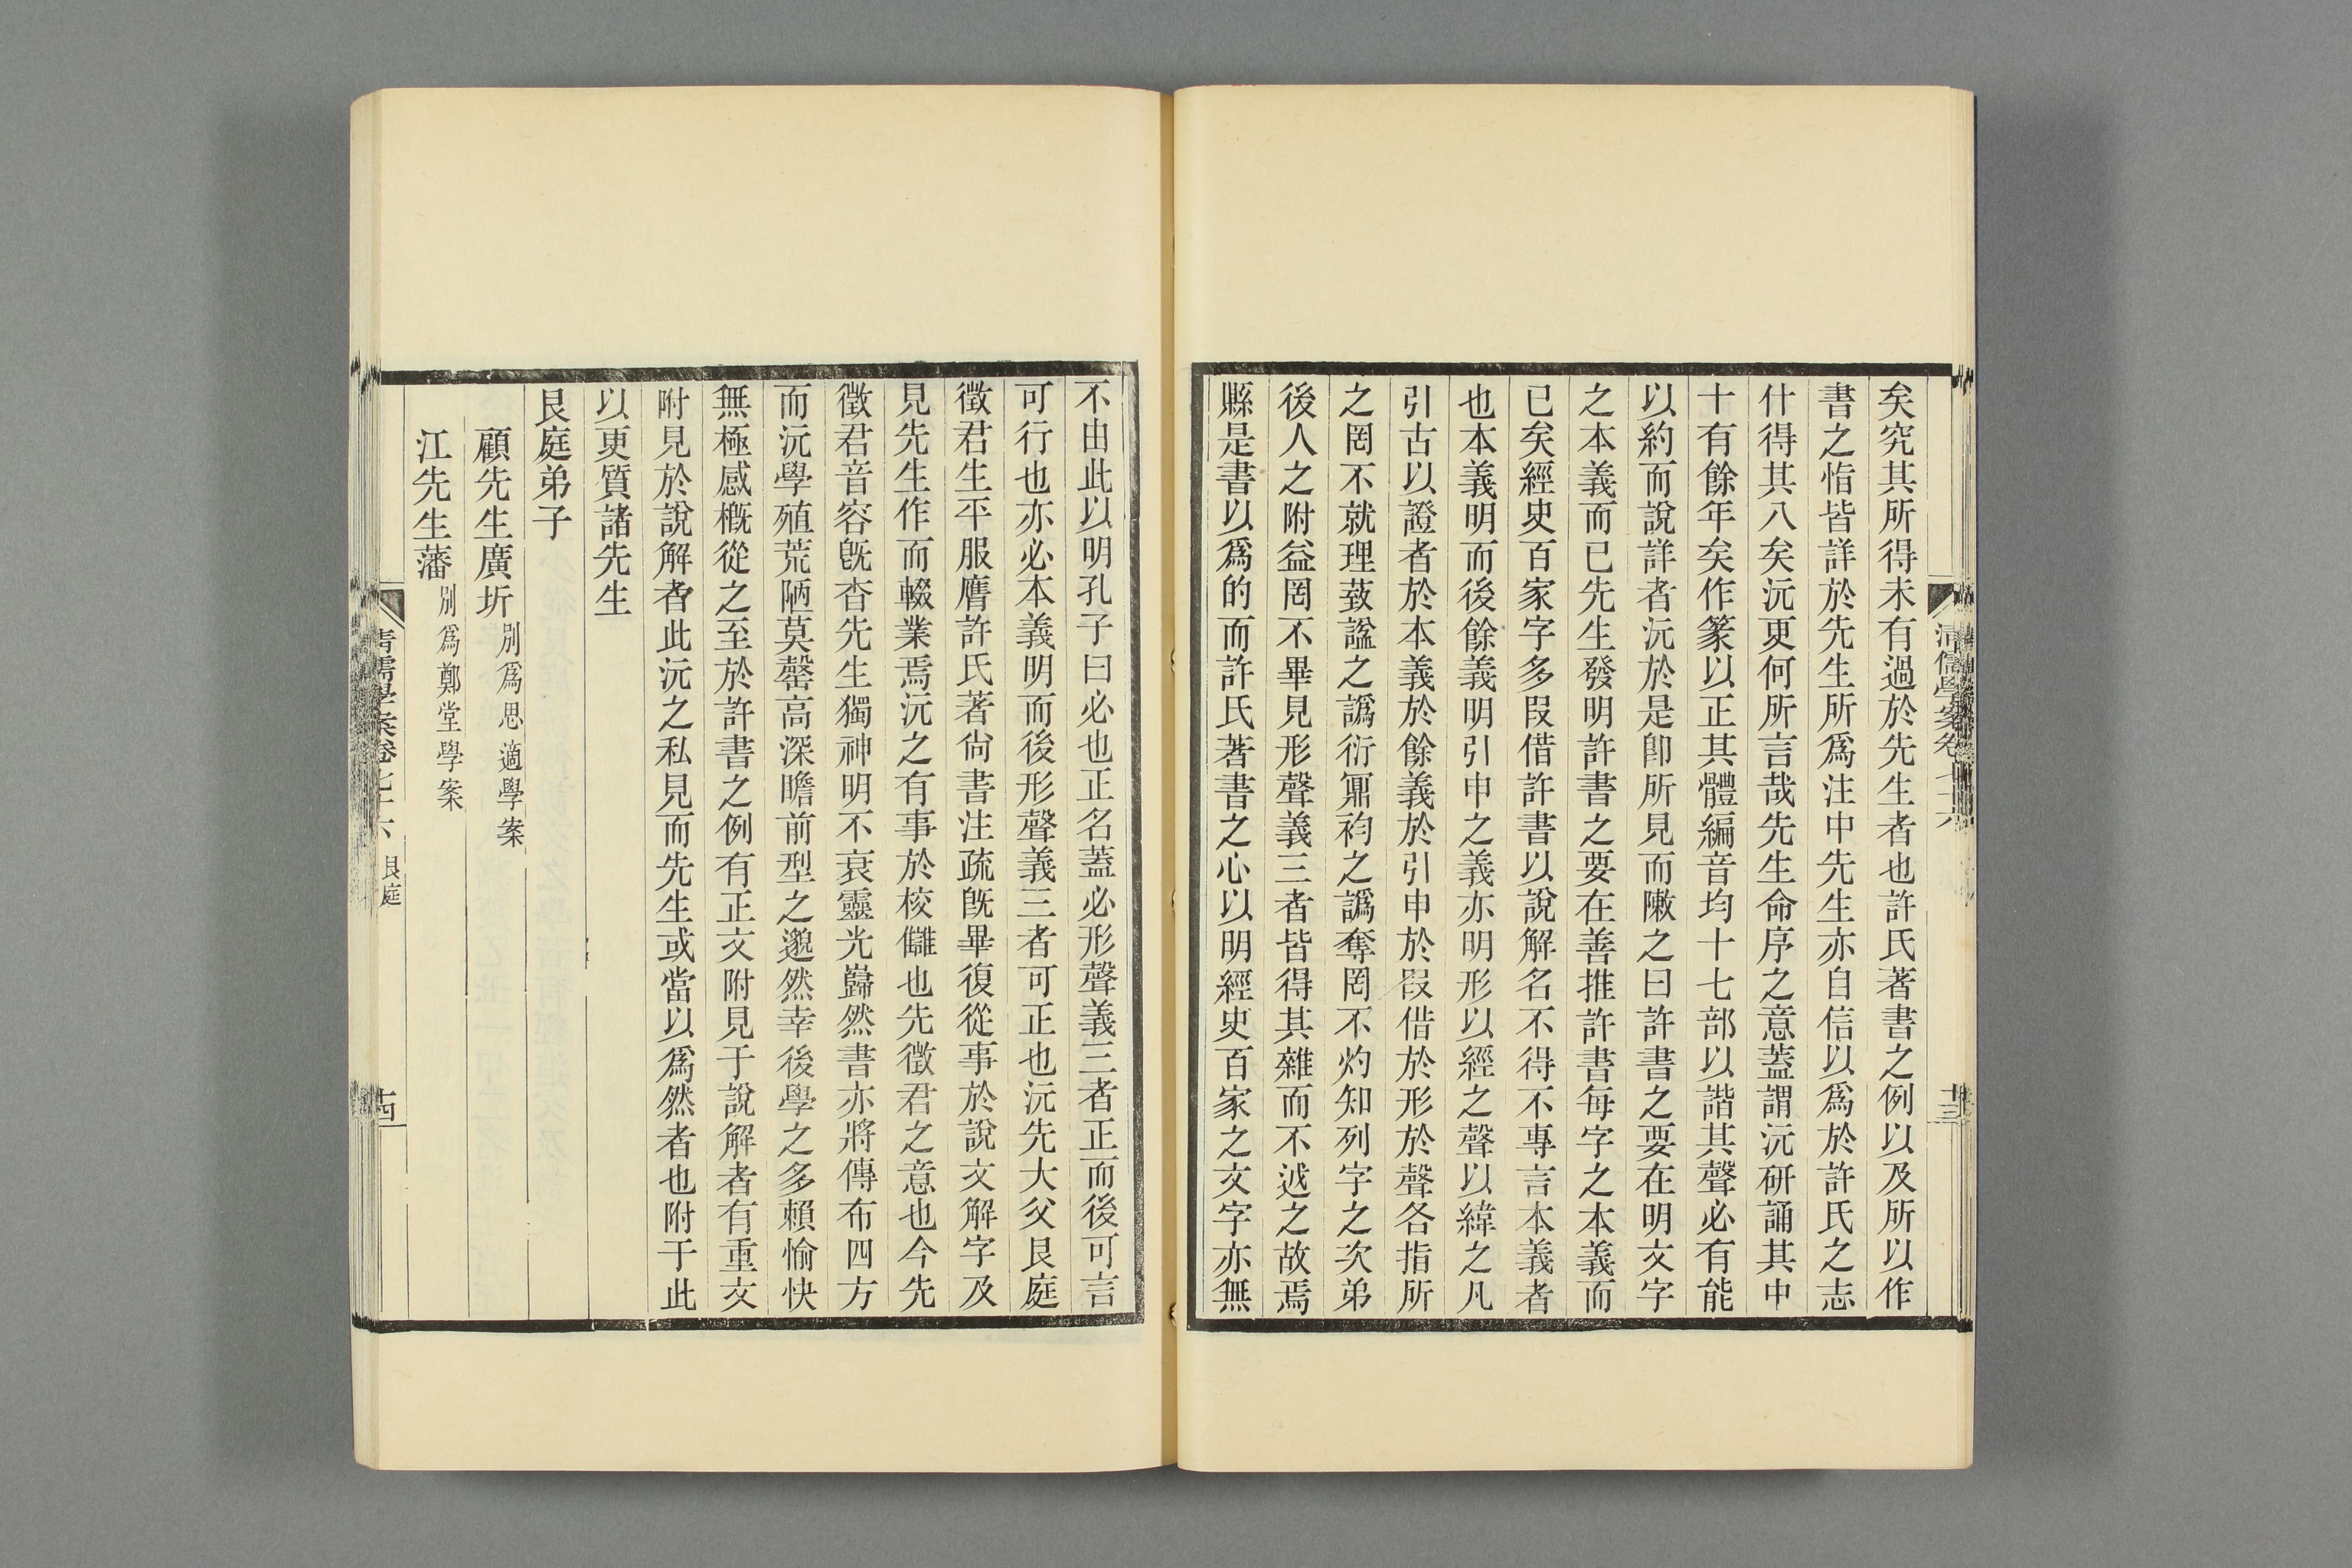 矣究其所得未有過於先生者也許氏著書之例以及所以作
書之恉皆詳於先生所爲注中先生亦自信以爲於許氏之志
什得其八矣沅更何所言哉先生命序之意蓋謂沅研誦其中
十有餘年矣作篆以正其體編音均十七部以諧其聲必有能
以約而說詳者沅於是卽所見而敶之曰許書之要在明文字
之本義而已先生發明許書之要在善推許書每字之本義而
已矣經史百家字多叚借許書以說解名不得不專言本義者
也本義明而後餘義明引申之義亦明形以經之聲以緯之凡
引古以證者於本義於餘義於引申於叚借於形於聲各指所
之罔不就理茲謚之譌衍鼏袀之譌奪罔不灼知列字之次弟
後人之附益罔不畢見形聲義三者皆得其雜而不𨒋之故焉
縣是書以爲的而許氏著書之心以明經史百家之文字亦無
清儒學案卷七十六
十三
不由此以明孔子曰必也正名蓋必形聲義三者正而後可言
可行也亦必本義明而後形聲義三者可正也沅先大父艮庭
徵君生平服膺許氏著尙書注疏旣畢復從事於說文解字及
見先生作而輟業焉沅之有事於校讎也先徵君之意也今先
徵君音容旣杳先生獨神明不衰靈光巋然書亦將傳布四方
而沅學殖荒陋莫罄高深瞻前型之邈然幸後學之多賴愉快
無極感槪從之至於許書之例有正文附見于說解者有重文
附見於說解者此沅之私見而先生或當以爲然者也附于此
以更質諸先生
艮庭弟子
顧先生廣圻別爲思適學案
江先生藩別爲鄭堂學案
清儒學案卷七十六 艮庭
十四